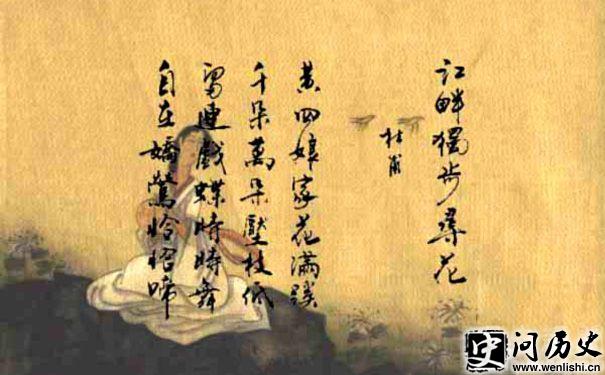 江畔獨步尋花
杜甫
黄四娘家花滿蹊
千朵萬朵壓枝低
留連戲蝶時時舞
自在嬌鶯恰恰啼
史 问历史
www.wenlishi.cn